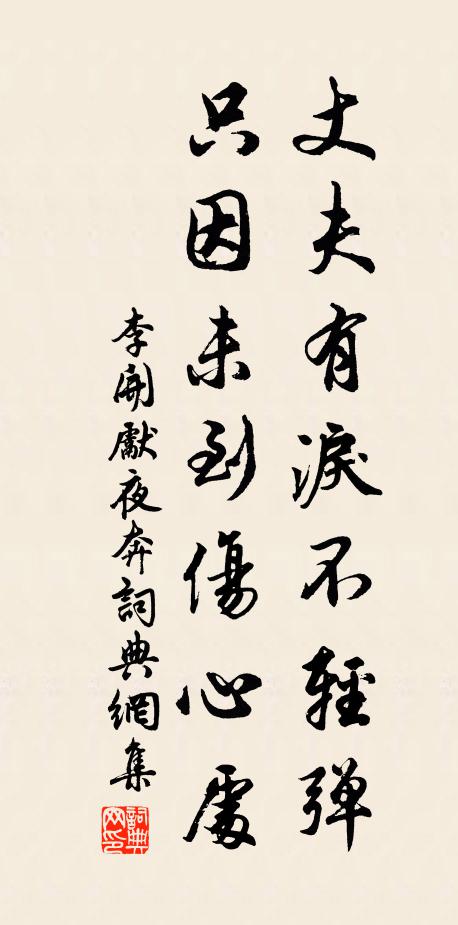 丈夫有淚不輕彈
只因未到傷心處
李開獻夜奔詞典網集
詞典网印